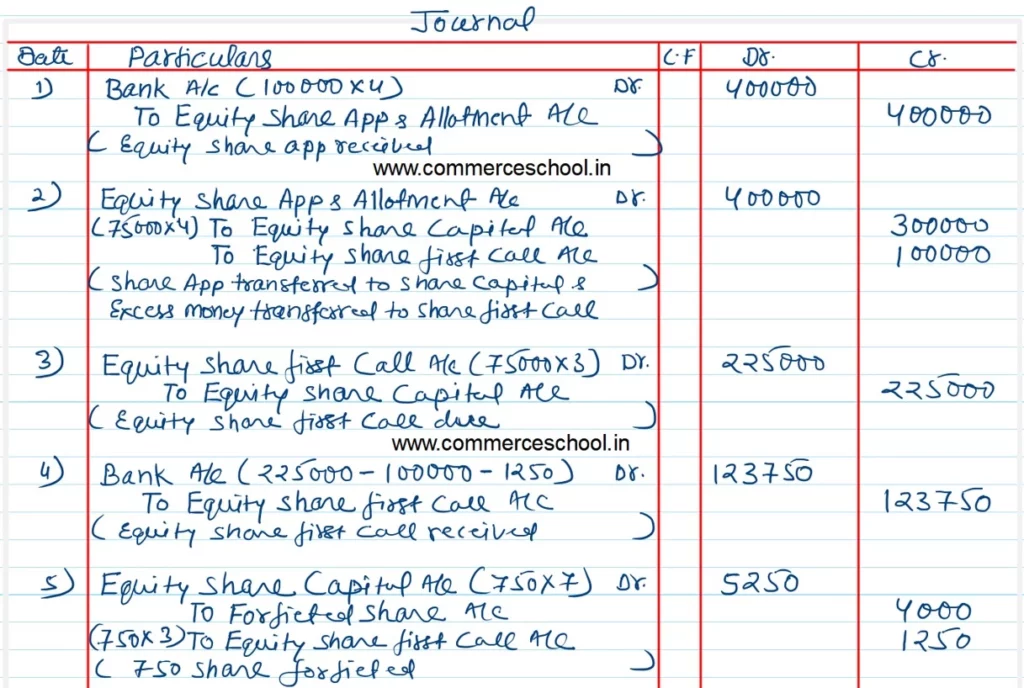 Journal
Date Particulars C.F Dr. Cr.
1) Bank A/c (100000×4) Dr. 400000
To Equity Share App & Allotment A/c 400000
( Equity Share app received )
www.commerceschool.in
2) Equity Share App & Allotment A/c Dr. 400000
(75000×4) To Equity Share Capital A/c 300000
To Equity Share first Call A/c 100000
( Share App transferred to Share Capital & )
Excess money transferred to Share first Call
3) Equity Share first Call A/c (75000×3) Dr. 225000
To Equity Share Capital A/c 225000
( Equity Share first Call due )
www.commerceschool.in
4) Bank A/c (225000-100000-1250) Dr. 123750
To Equity Share first Call A/c 123750
( Equity Share first Call received )
5) Equity Share Capital A/c (750×7) Dr. 5250
To Forfieted Share A/c 4000
(750×3) To Equity Share first Call A/c 1250
( 750 Share forfieted )